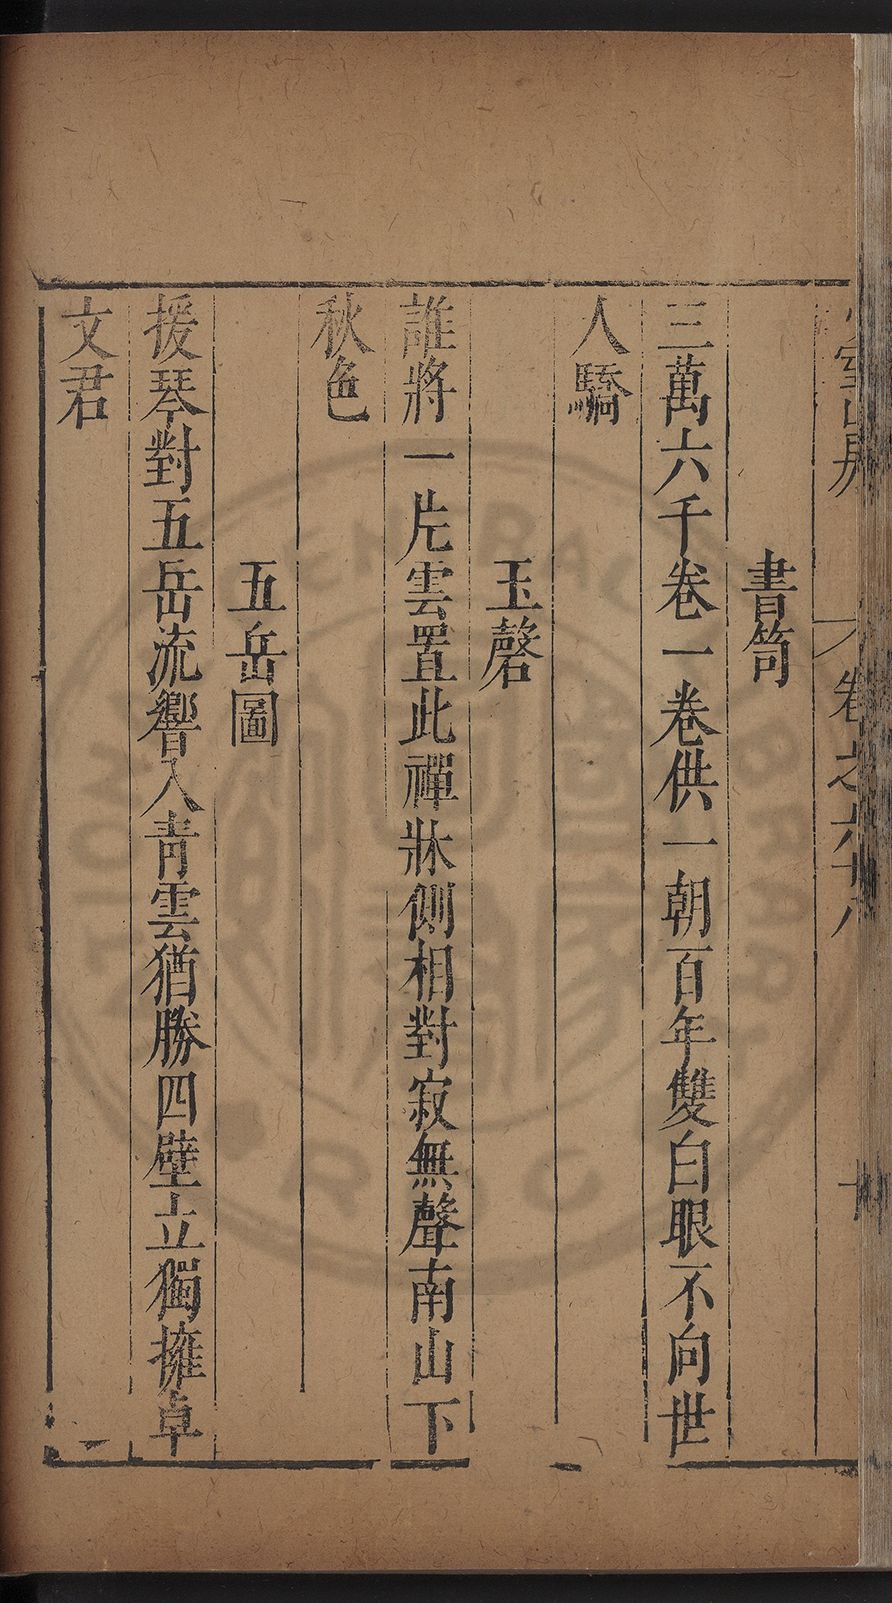 書笥
三萬六千卷一卷供一朝百年雙白眼不向世
人驕
玉磬
誰將一片雲置此禪牀側相對寂無聲南山下
秋色
五岳圖
援琴對五岳流響入青雲猶勝四壁立獨擁卓
文君